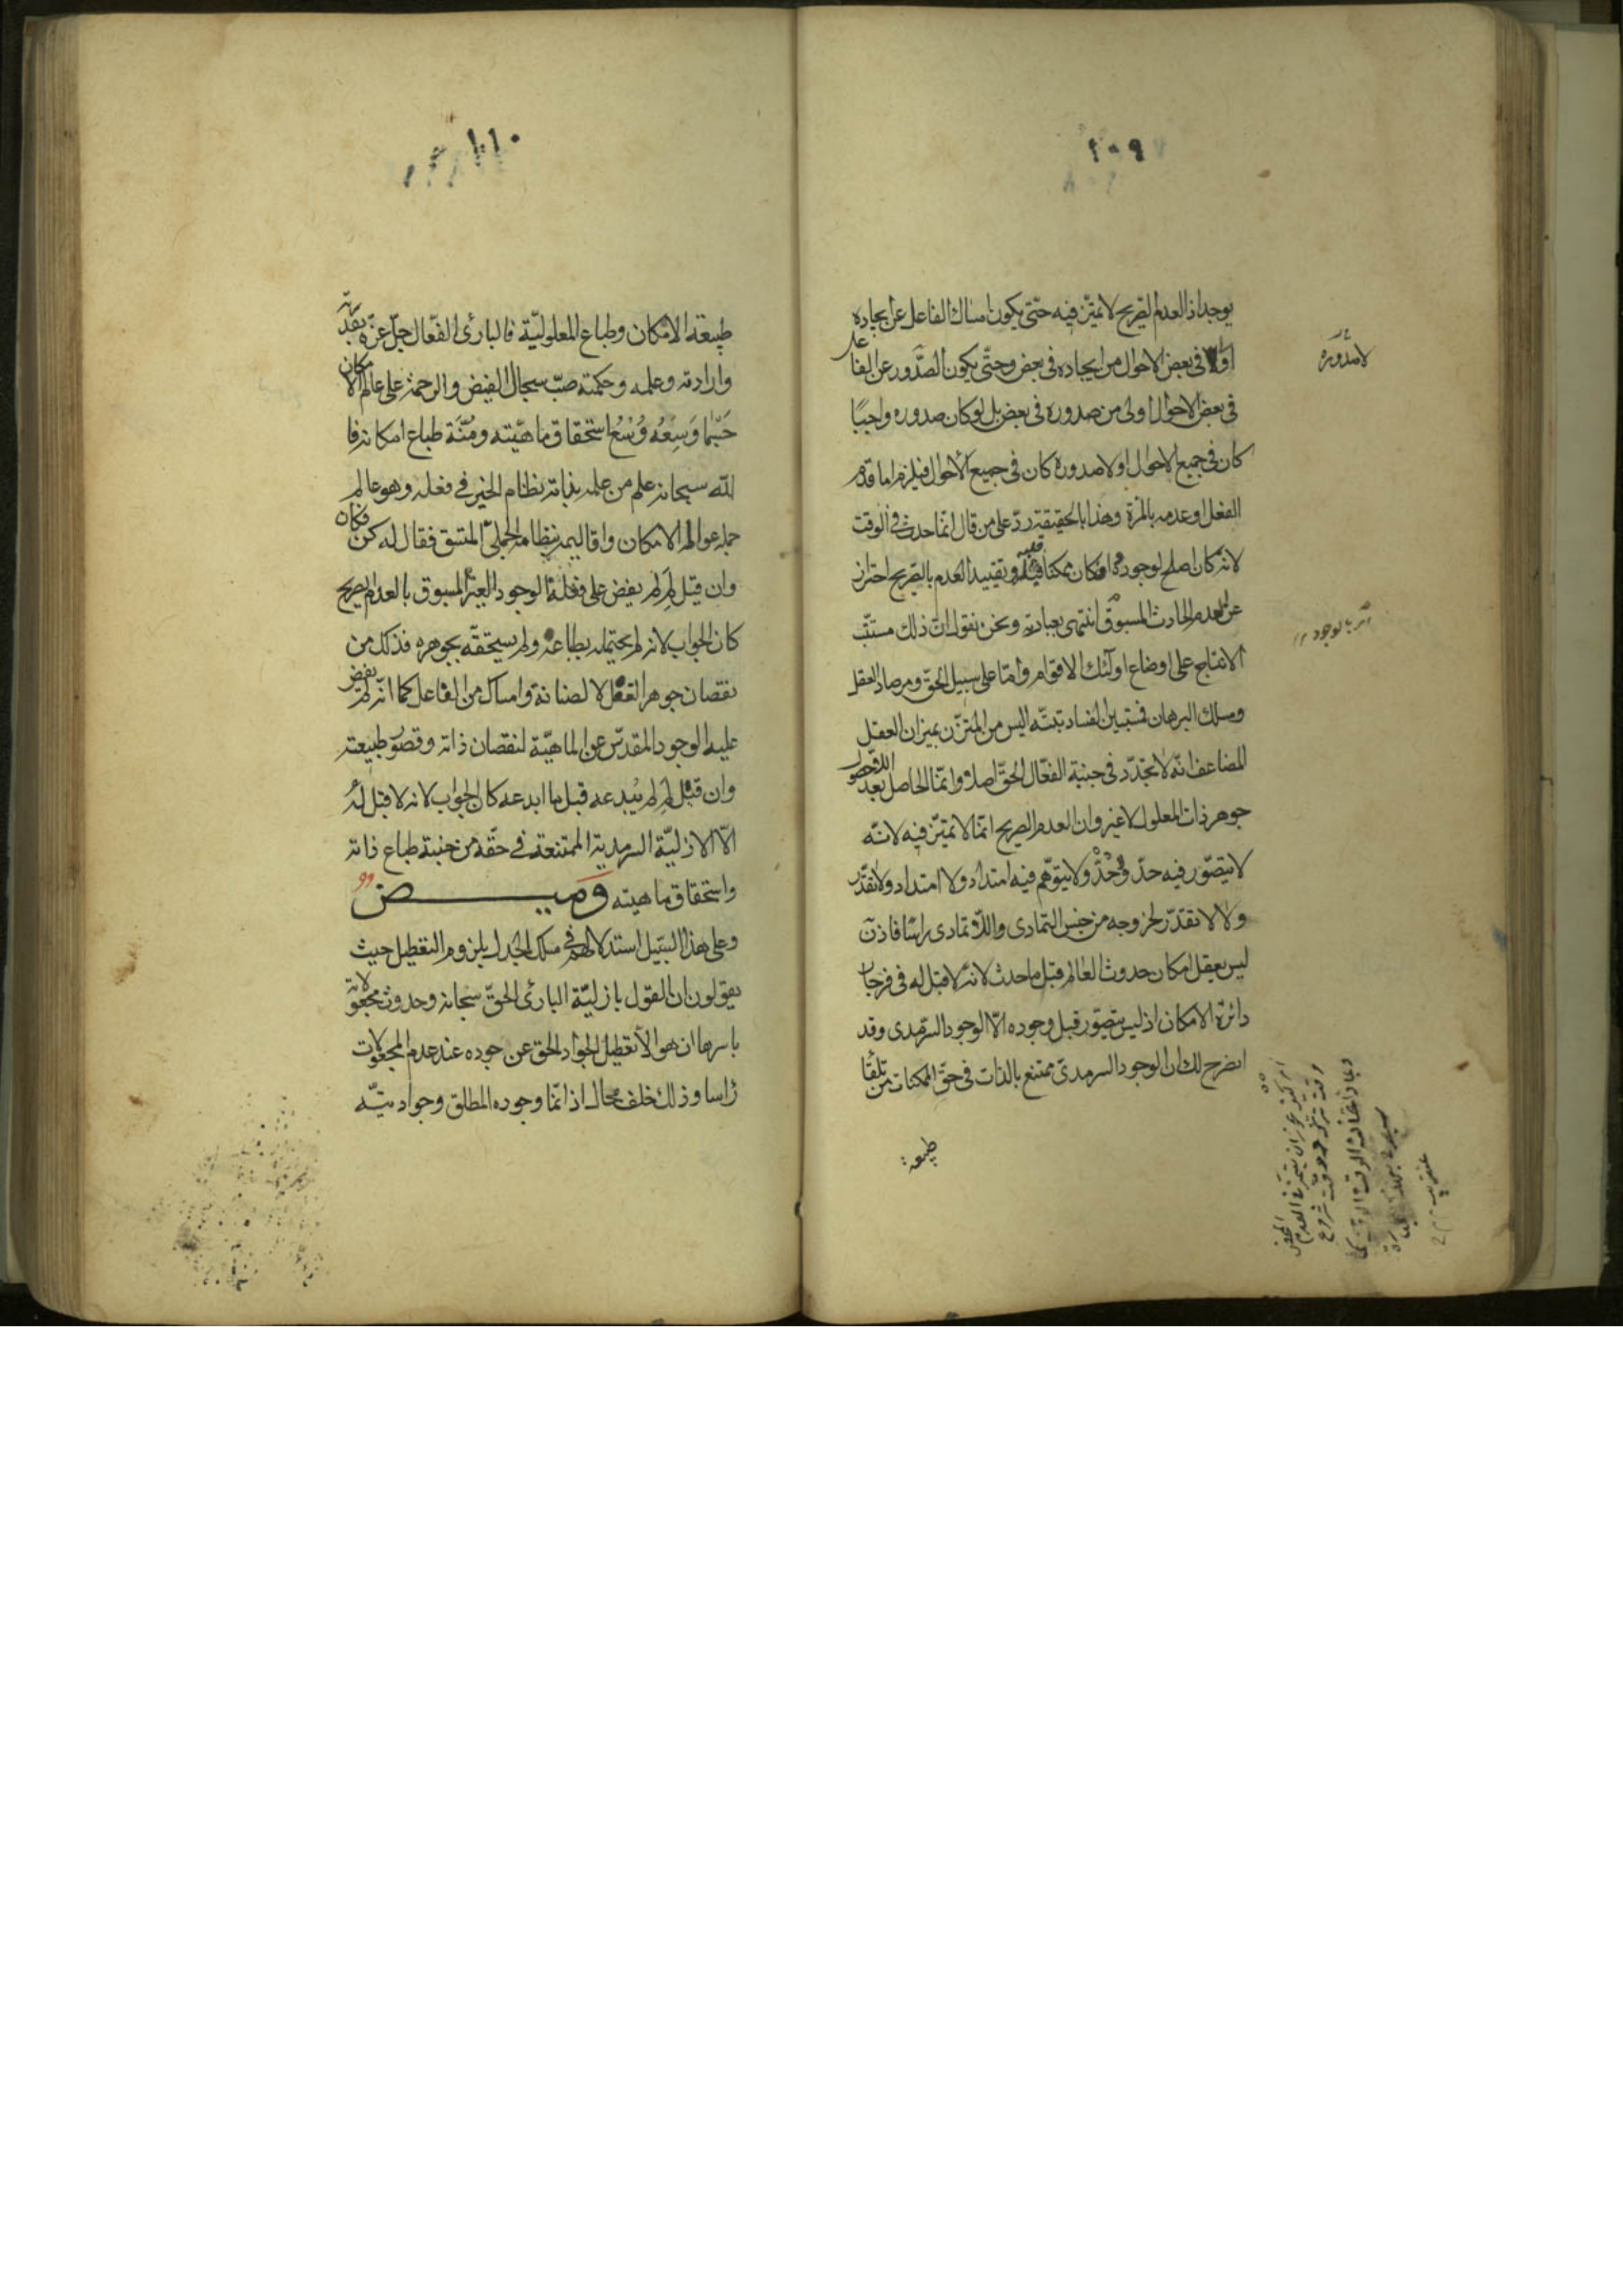 ٢٠٩
يوجد اذ العدم الصّريح لا تميّز فيه حتّى يكون امساك الفاعل عن ايجاده
اولى فى بعض الاحوال من ايجاده فى بعض وحتّى يكون الصّدور عن الفاعل
فى بعض الاحوال اولى من صدوره فى بعض بل لو كان صدوره واجبًا
كان فى جميع الاحوال او لا صدوره كان فى جميع الأحوال فيلزم اما قدم
الفعل او عدمه بالمرّة وهذا بالحقيقة ردّ على من قال انّما حدث فى الوقت
لانه كان اصلح لوجوده او كان ممكنا فيه وتقييد العدم بالصّريح احتراز
عن العدم الحادث المسبوق انتهى بعبارته ونحن نقول انّ ذلك مستتبّ
الانتاج على اوضاع اولئك الاقوام وامّا على سبيل الحقّ ومرصاد العقل
ومسلك البرهان فستبين الفساد بتّه اليس من المتزن بميزان العقل
المضاعف انّه لا تجدّد فى جنبة الفعّال الحقّ اصلا وانّما الحاصل بعد اللاحصول
جوهر ذات المعلول لا غير وان العدم الصريح انّما لا تميّز فيه لانّه
لا يتصوّر فيه حدّ وحدّ ولا يتوهّم فيه امتداد ولا امتداد ولا تقدّر
ولا لا تقدّر لخروجه من جنس التمادى واللّا تمادى راسًا فاذن
ليس يعقل امكان حدوث العالم قبل ما حدث لانّه لا قبل له فى فرجار
دائرة الامكان اذ ليس يتصوّر قبل وجوده الّا الوجود السّرمدى وقد
اتضح لك ان الوجود السرمدىّ ممتنع بالذات فى حقّ الممكنات من تلقا
طبيعة
لا صدوره
اى بالوجود
٢١٠
طبيعة الامكان وطباع المعلوليّة فالبارئ الفعّال جلّ عزّه بقدرته
وارادته وعلمه وحكمته صبّ سجال الفيض والرحمة على عالم الامكان
حَيثما وَسِعَه وُسْعُ استحقاق ماهيّته ومُنّة طباع امكانه فا
للّه سبحانه علم من علمه بذاته نظام الخير فى فعله وهو عالم
جملة عوالم الامكان واقاليمه بنظامه الجملىّ المتسق فقال له كن فكان
وان قيل لِمَ لم يفض على فعله الوجود الغير المسبوق بالعدم الصريح
كان الجواب لانه لم يحتمله بطباعه ولم يستحقّه بجوهره فذلك من
نقصان جوهر الفعل لا لضنانة وامساك من الفاعل كما انّه لم يفض
عليه الوجود المقدّس عن الماهيّة لنقصان ذاته وقصور طبيعته
وان قيل لِمَ لم يُبدعه قبل ما ابدعه كان الجواب لانه لا قبل له
الّا الازليّة السرمدية الممتنعة فى حقّه من جنبة طباع ذاته
واستحقاق ماهيته وَميض
وعلى هذا السّبيل استدلالهم فى مسلك الجدل بلزوم التعطيل حيث
يقولون ان القول بازليّة البارئ الحقّ سبحانه وحدوث مجعولاته
باسرها ان هو الّا تعطيل الجواد الحق عن جوده عند عدم المجعولات
رأسا وذلك خلف محال اذ انّما وجوده المطلق وجواديتّه